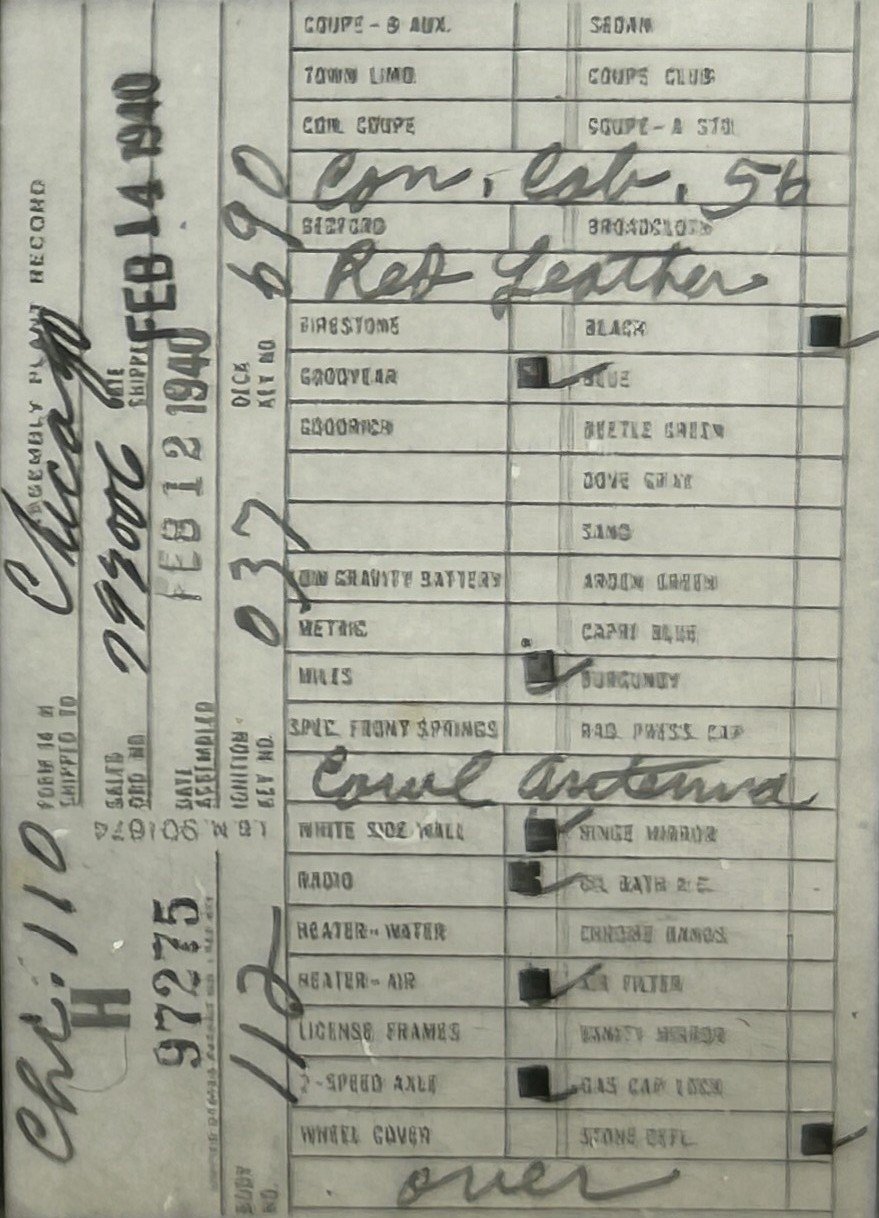 COUPE - B AUX. SEDAN
TOWN LIMO. COUPE CLUB
CON. COUPE COUPE - A STD.
Con. Cab. 56
BEDFORD BROADCLOTH
Red Leather
FIRESTONE BLACK
GOODYEAR BLUE
GOODRICH BEETLE GREEN
DOVE GRAY
SAND
LOW GRAVITY BATTERY ARDEN GREEN
METRIC CAPRI BLUE
MILES BURGUNDY
SPEC. FRONT SPRINGS RAD. PRESS. CAP
Cowl Antenna
WHITE SIDE WALL HINGE MIRROR
RADIO OIL BATH A.C.
HEATER - WATER CHROME BANDS
HEATER - AIR AIR FILTER
LICENSE FRAMES VANITY MIRROR
2-SPEED AXLE GAS CAP LOCK
WHEEL COVER STONE DEFL.
over
ASSEMBLY PLANT RECORD
FORM 14 M
SHIPPED TO Chicago
SALES ORD. NO.
DATE SHIPPED FEB 14 1940
DATE ASSEMBLED FEB 12 1940
IGNITION KEY NO. 037
DECK KEY NO. 690
Chi. 110
H
97275
BODY NO. 112